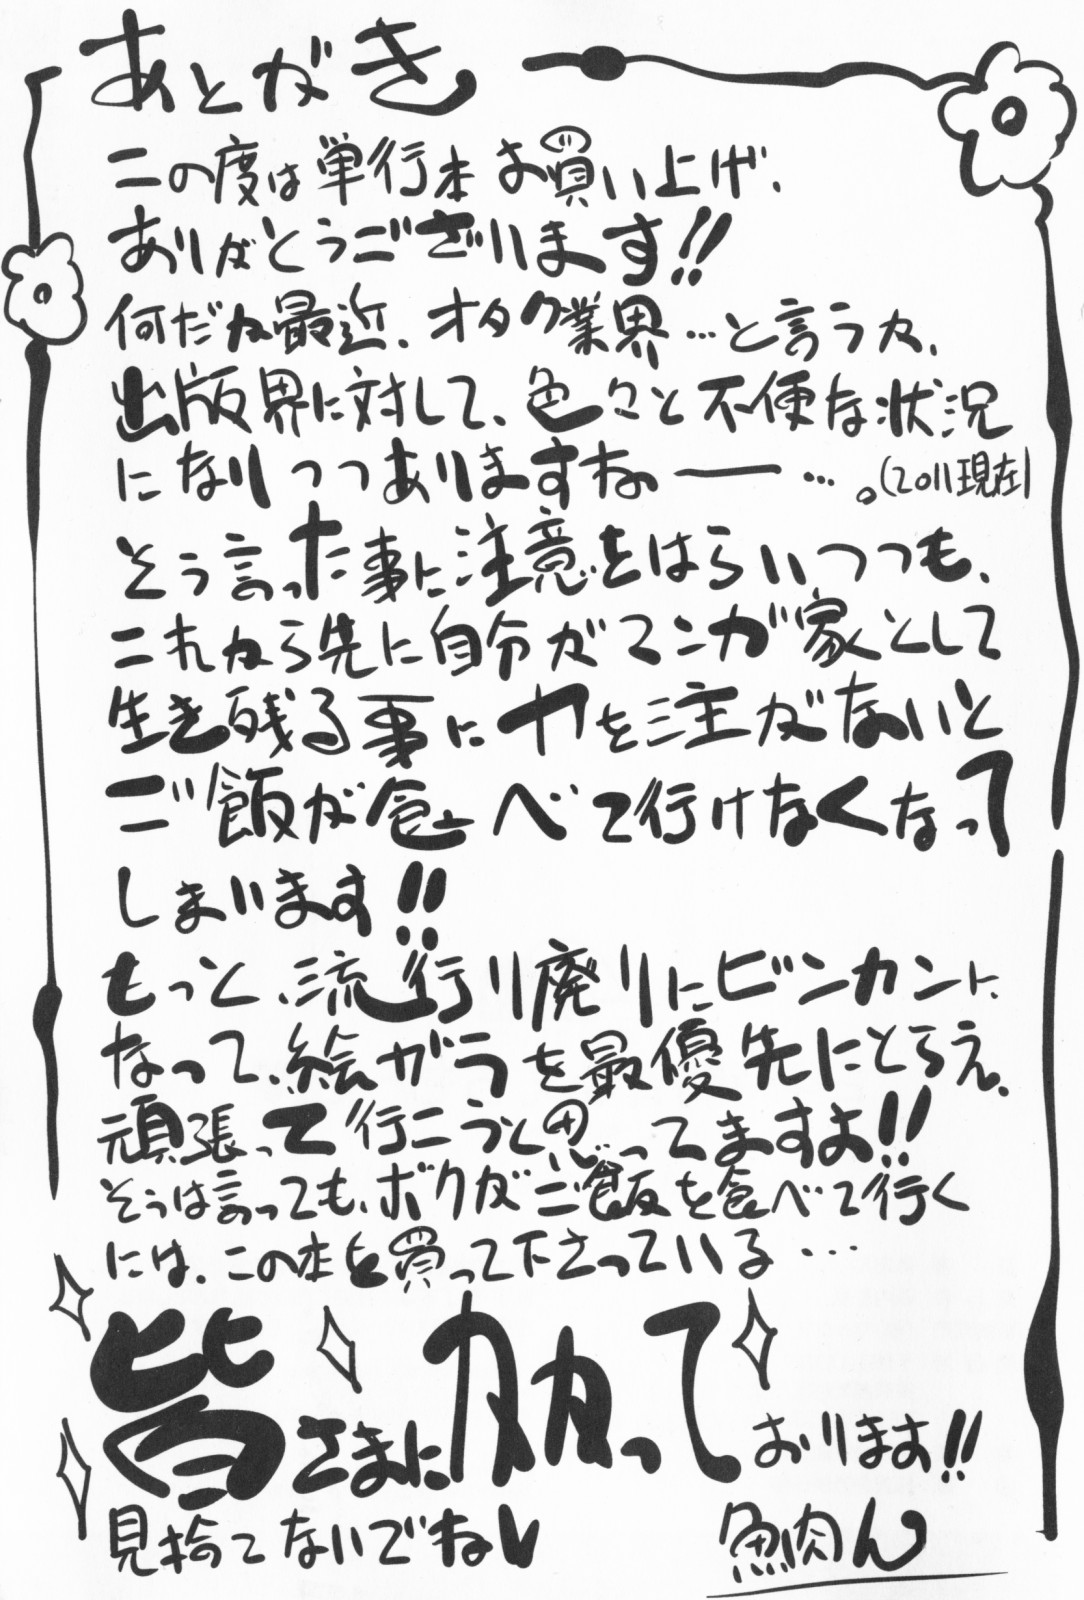 あとがき
この度は単行本お買い上げ、
ありがとうございます!!
何だか最近、オタク業界…と言うか、
出版界に対して、色々と不便な状況
になりつつありますねー…。(2011現在)
そう言った事に注意をはらいつつも、
これから先に自分がマンガ家として
生き残る事に力を注がないと
ご飯が食べて行けなくなって
しまいます!!
もっと、流行り廃りにビンカンに
なって、絵ガラを最優先にとらえ、
頑張って行こうと思ってますよ!!
そうは言っても、ボクがご飯を食べて行く
には、この本を買って下さっている…
皆さまにかかって
おります!!
見捨てないでね
魚肉ん